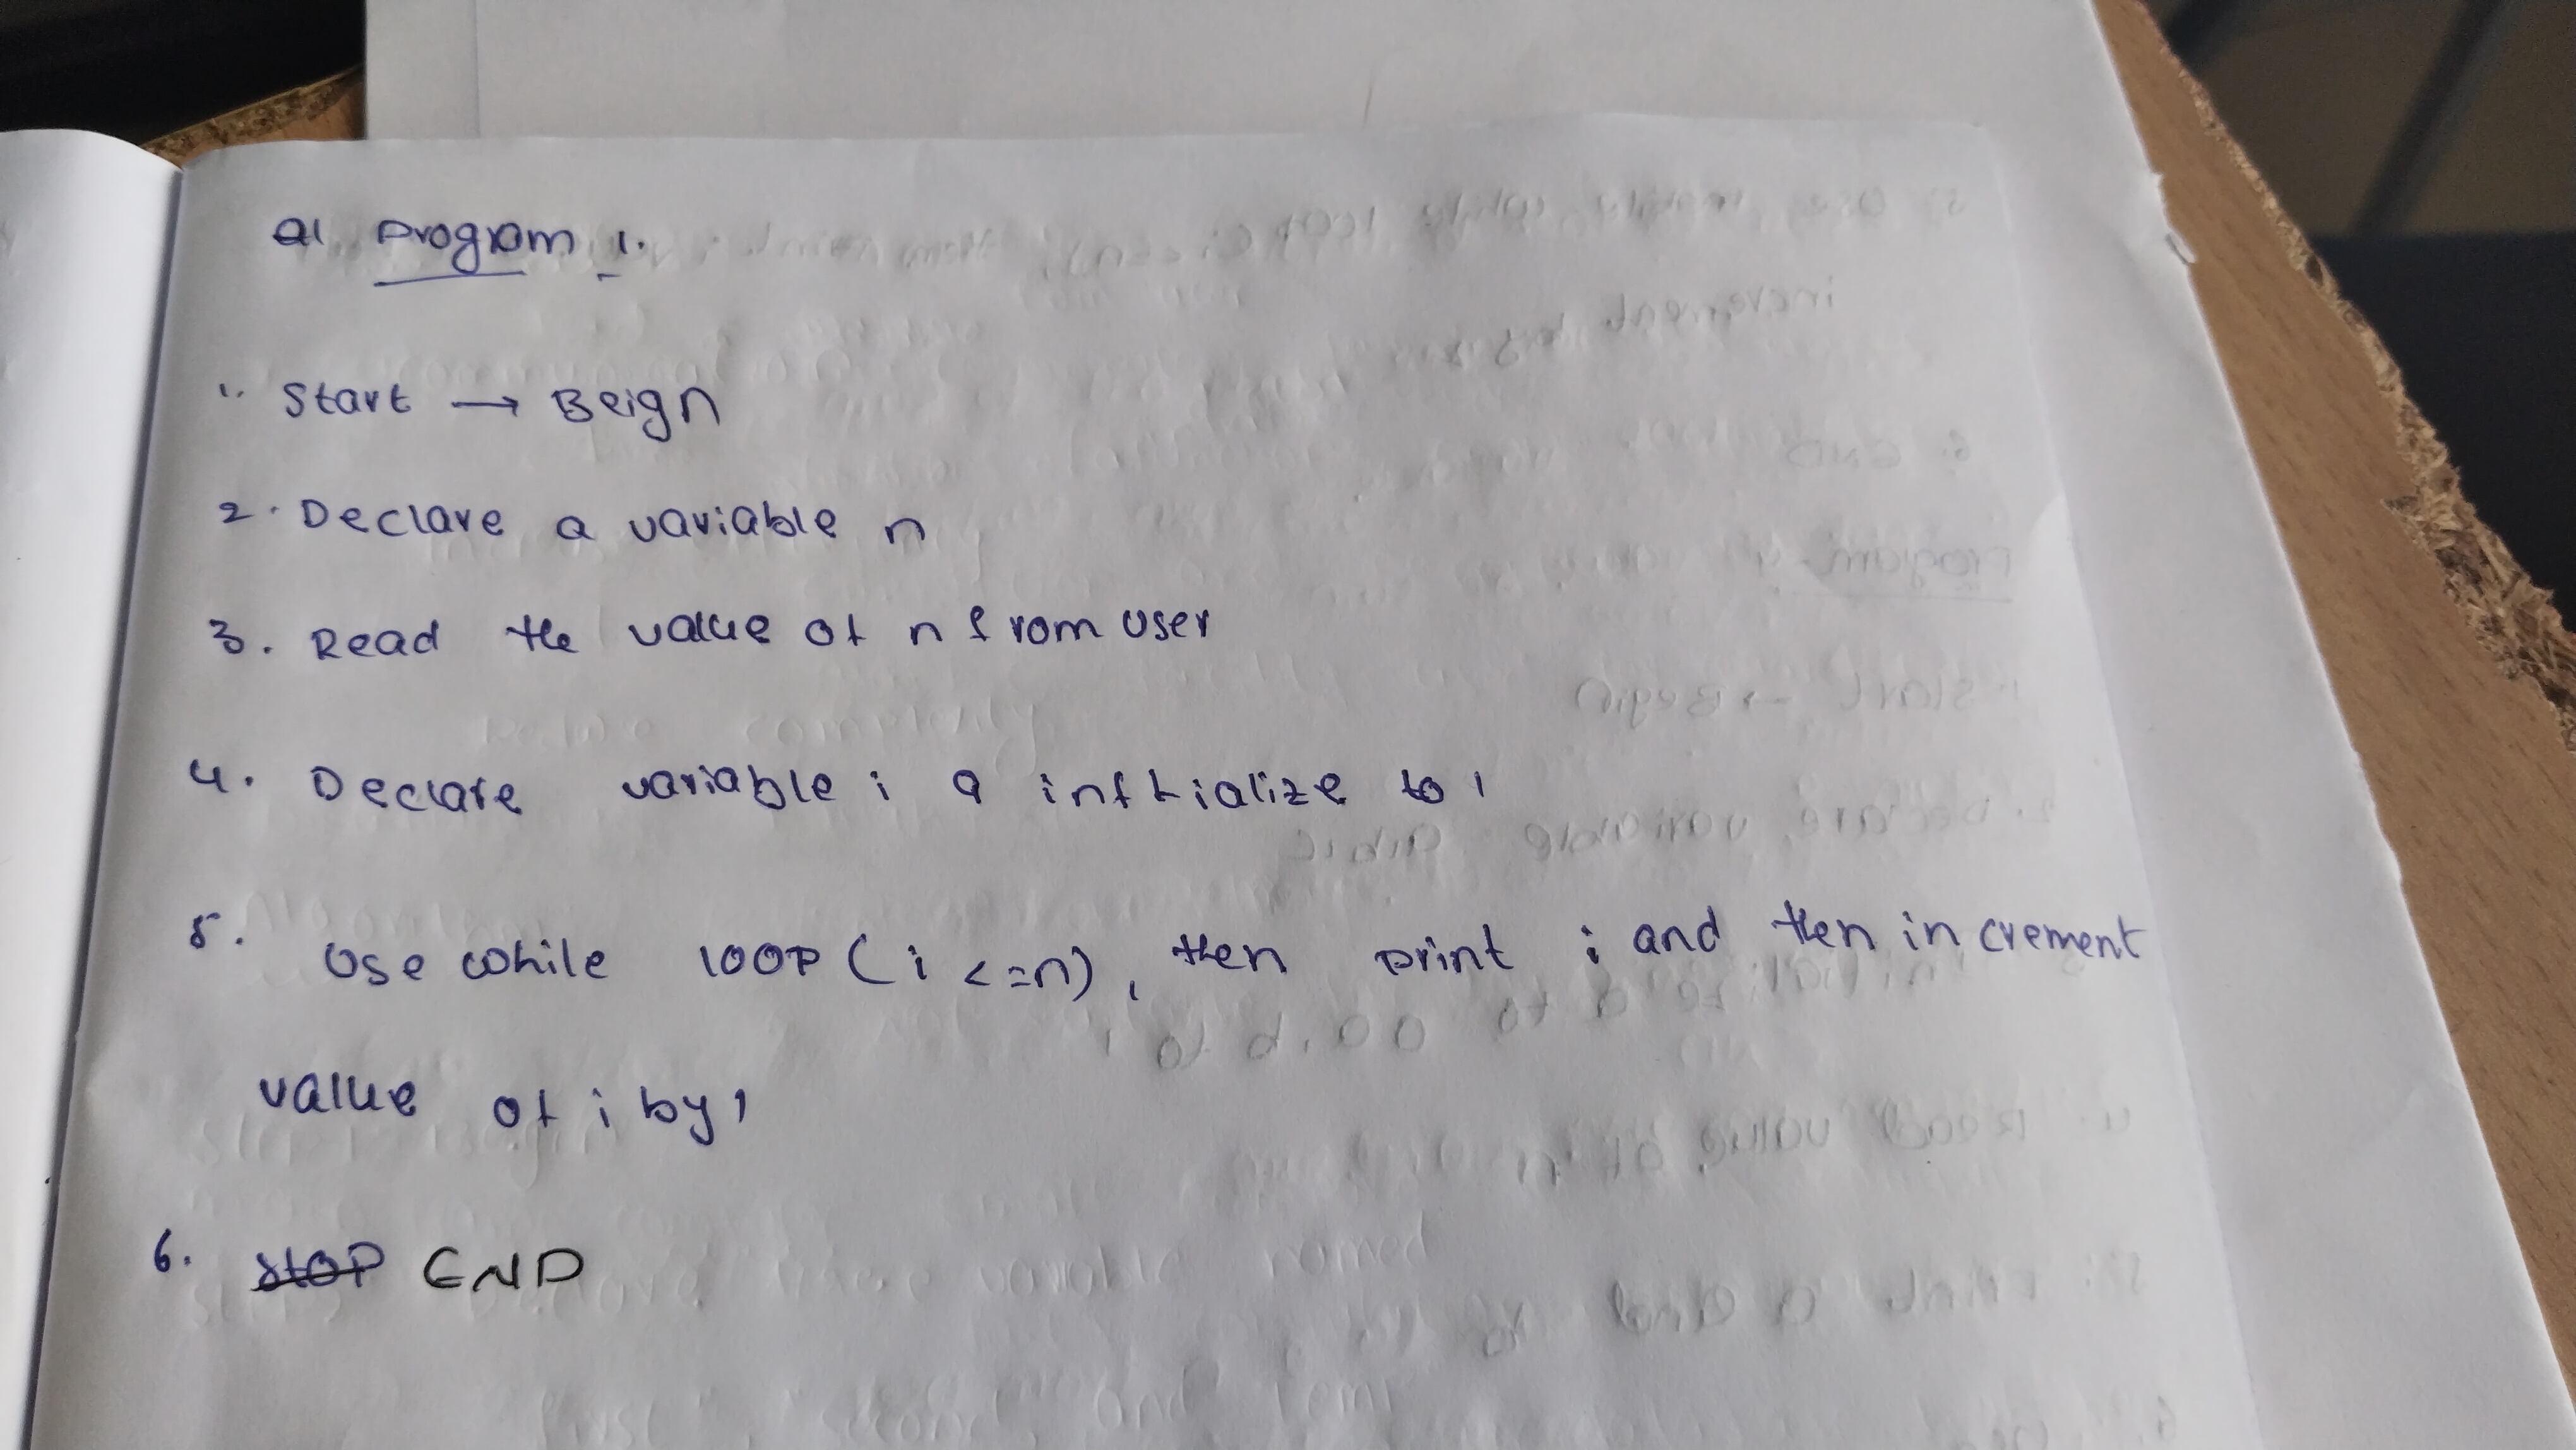 Q1 Program 1.
1. Start → Beign
2. Declare a variable n
3. Read the value of n from user
4. Declare variable i a inftialize to 1
5. Use while loop (i <=n), then print i and then increment
value of i by 1
6. stop END